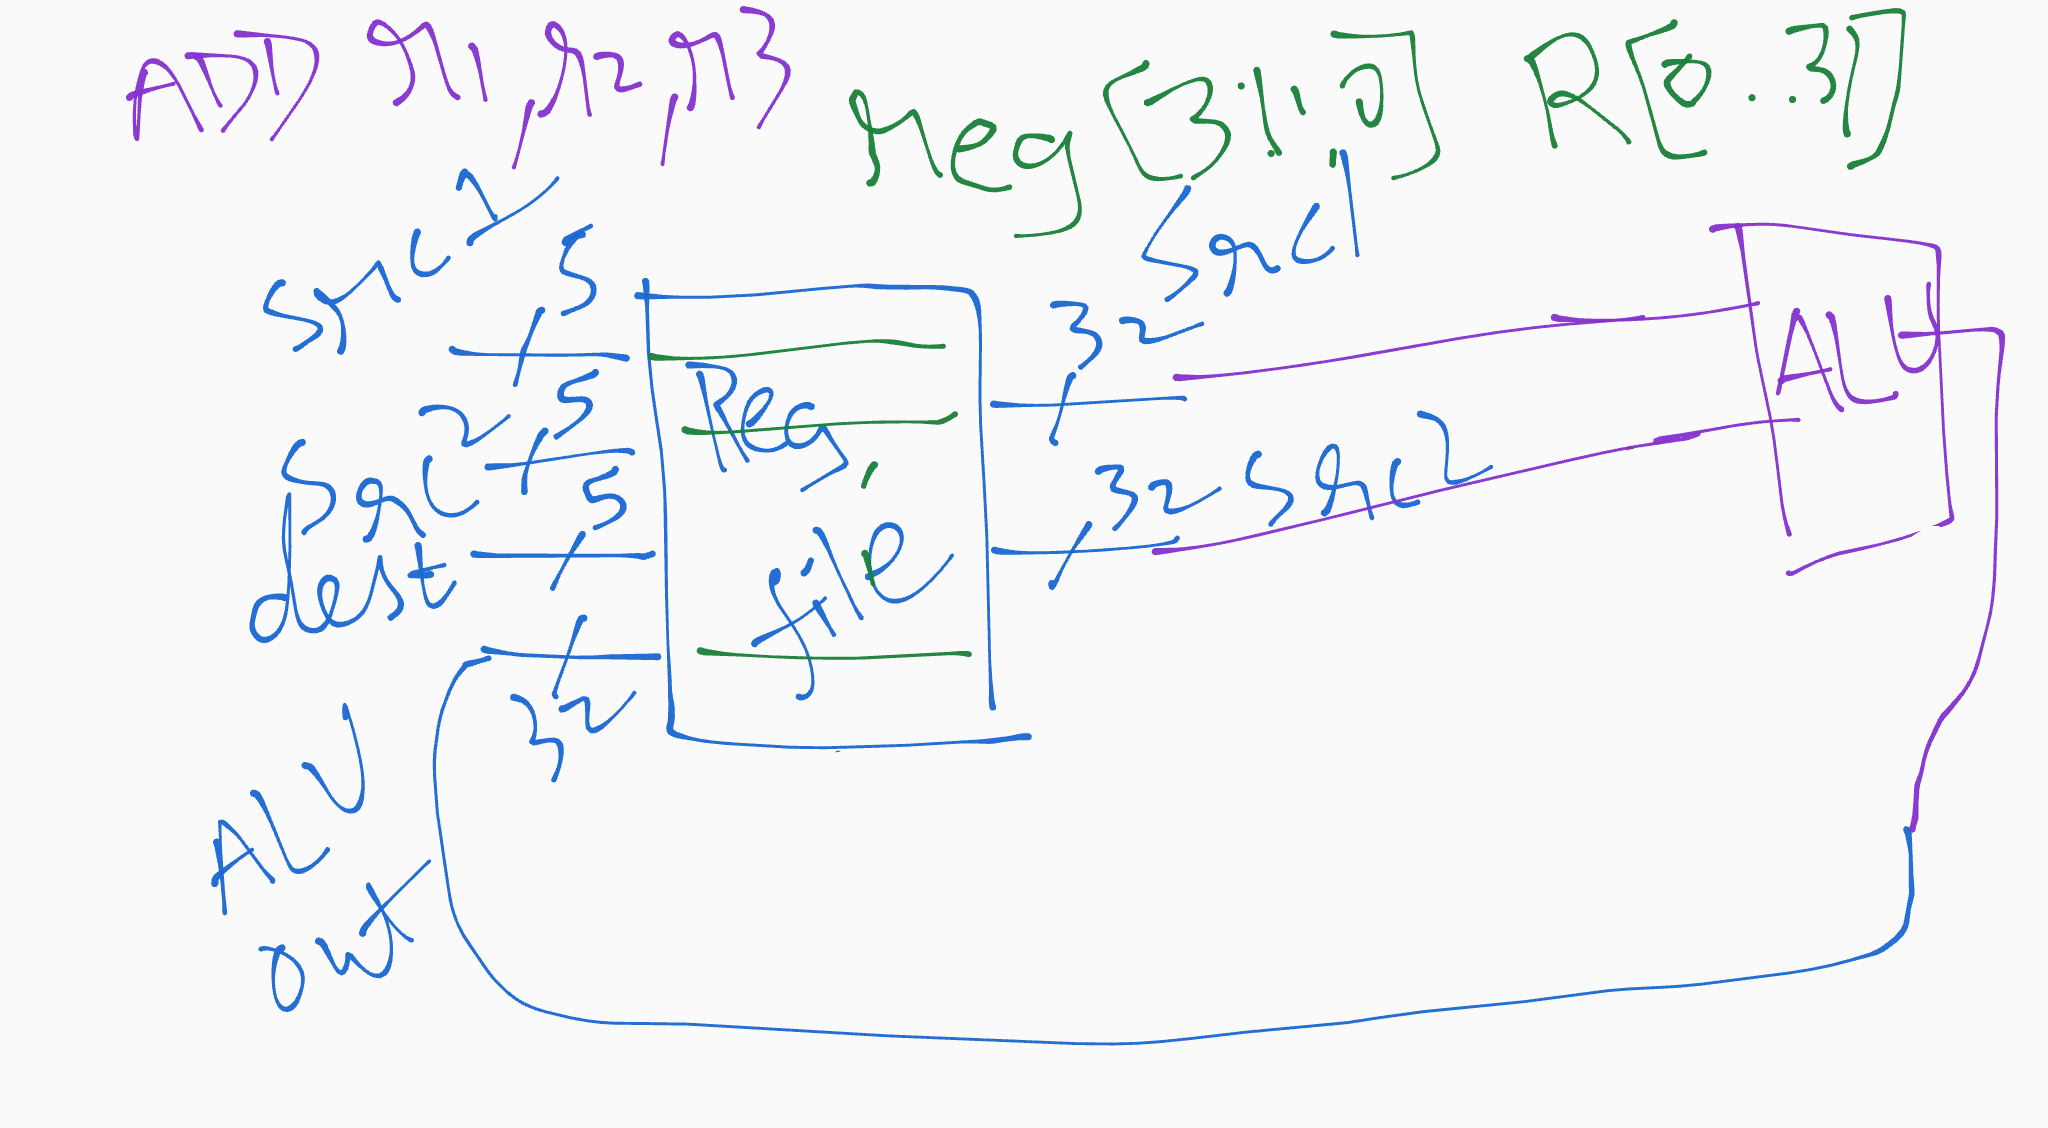 ADD r1, r2, r3
reg [31:0] R[0..31]
src1
5
src2
5
dest
5
32
ALU
out
Reg
file
32
src1
32
src2
ALU